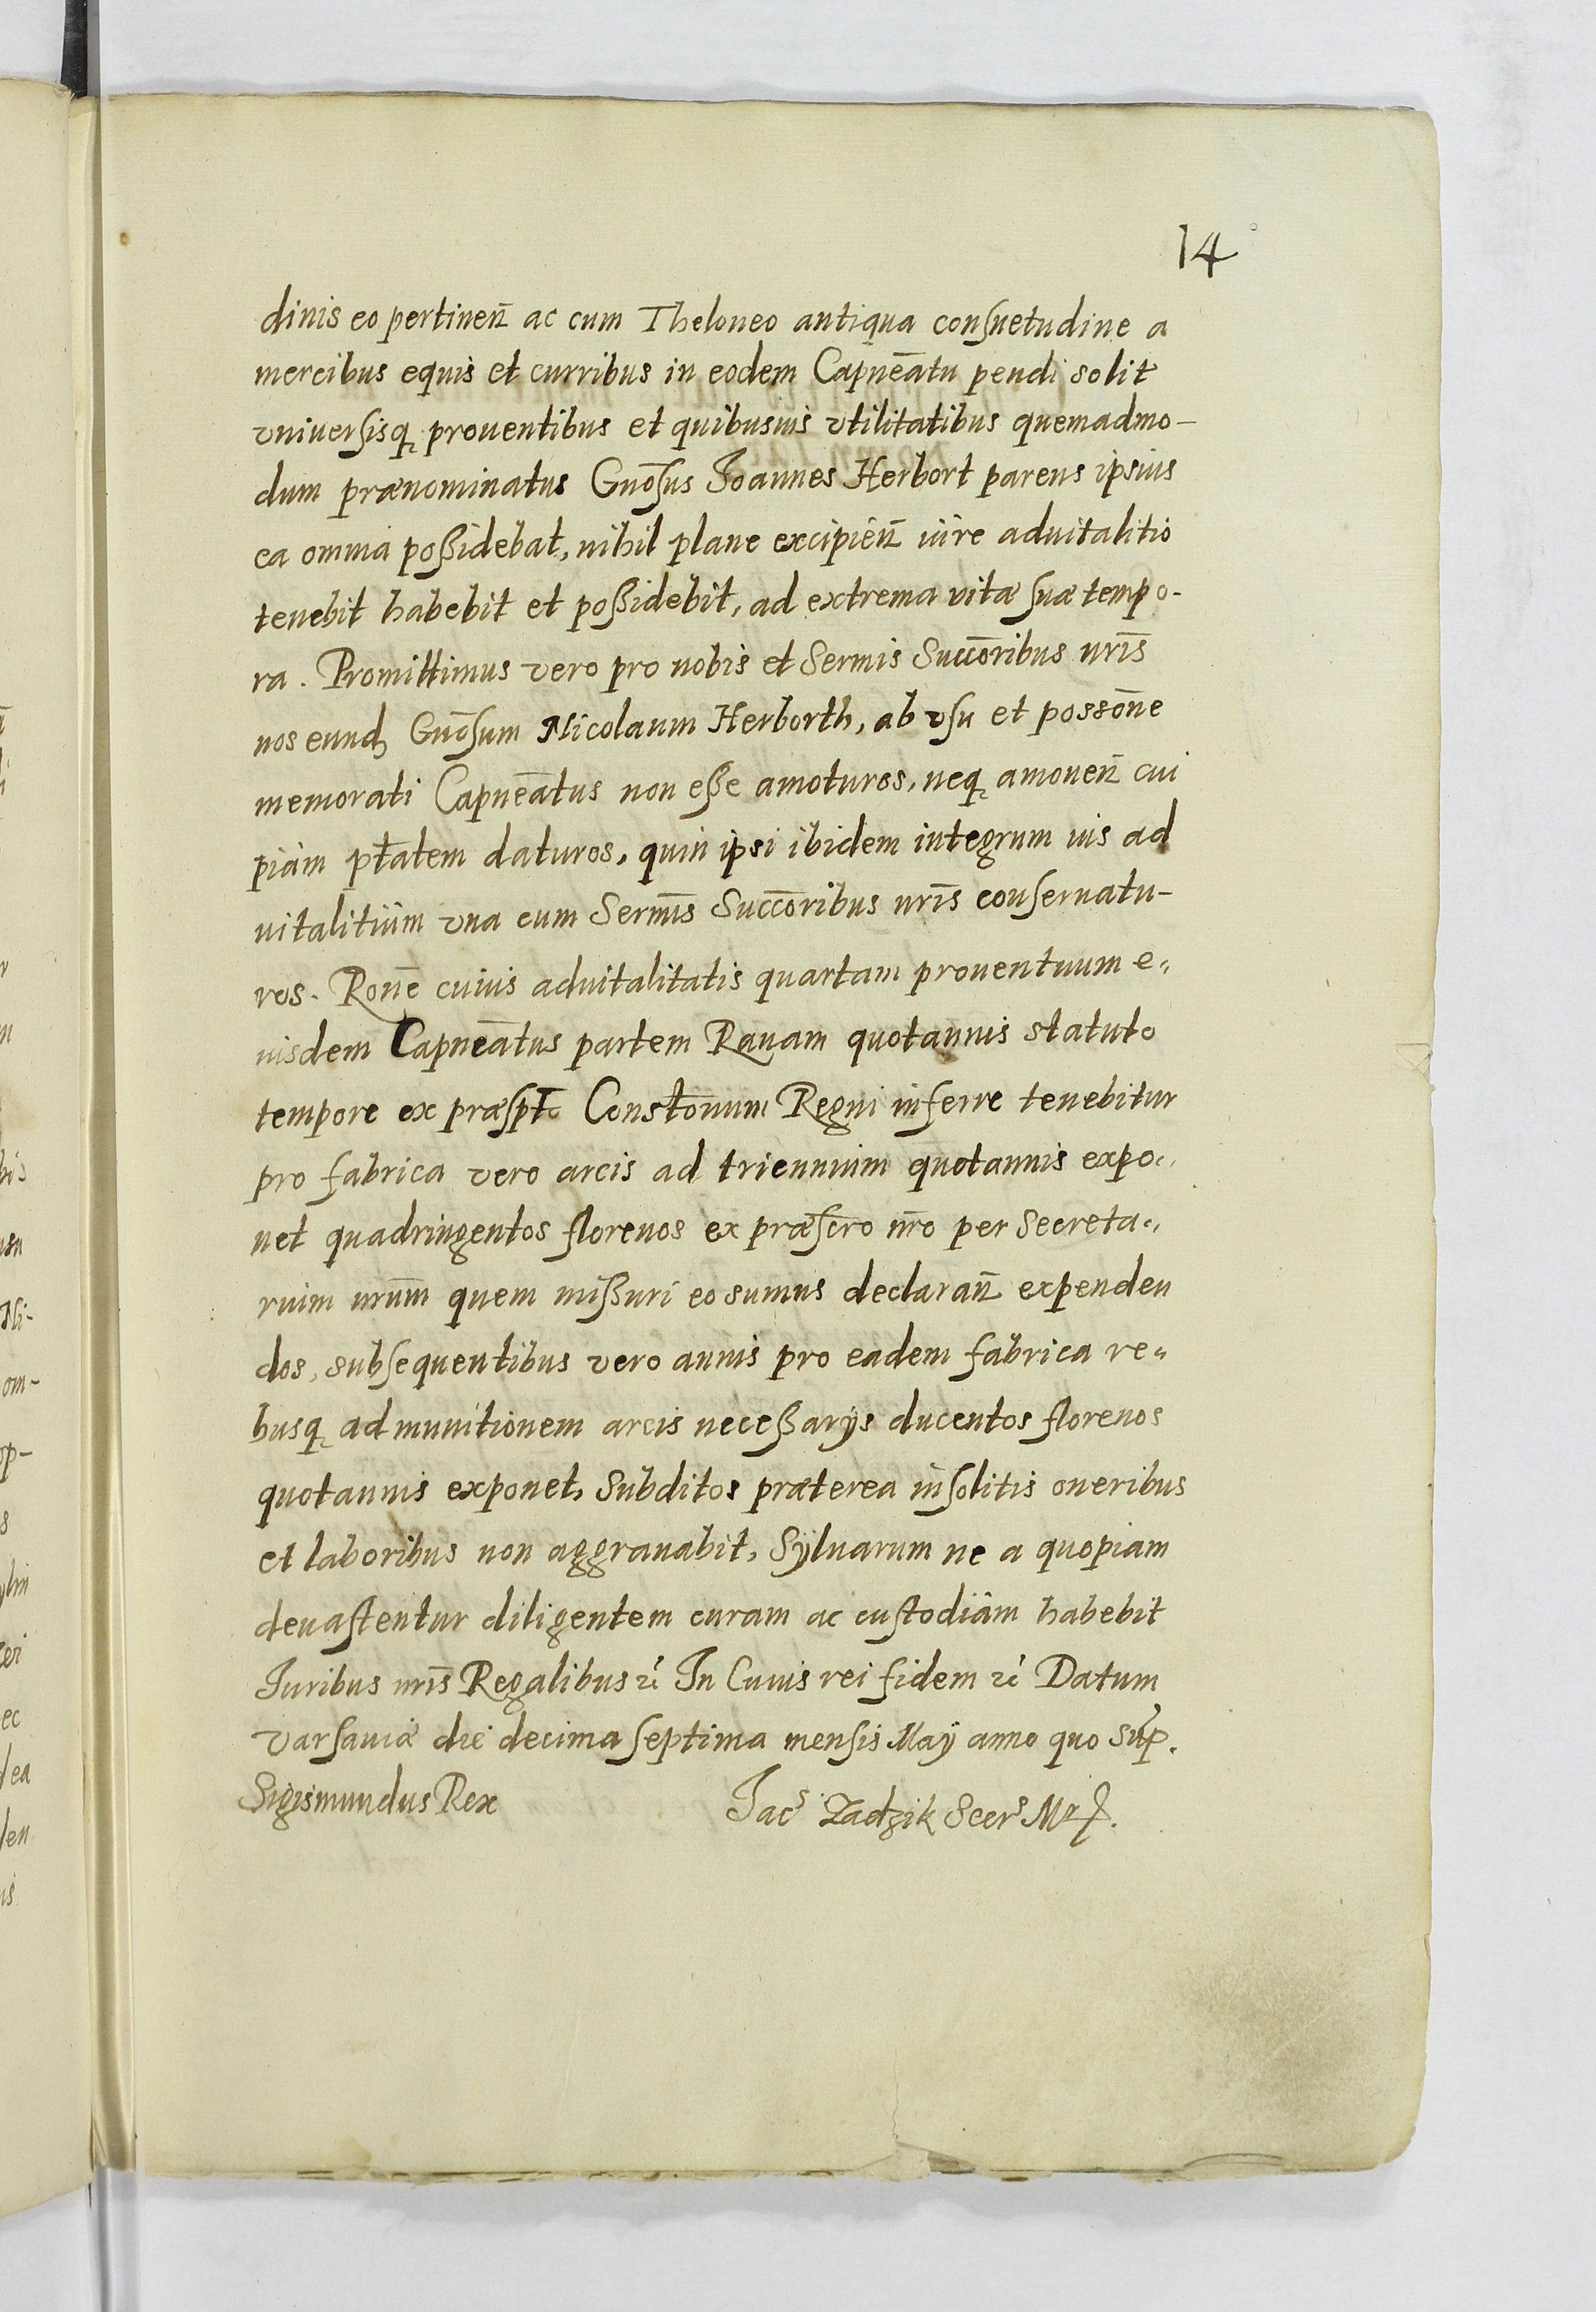 14
dinis eo pertinen̄ ac cum Theloneo antiqua consuetudine a
mercibus equis et curribus in eodem Capneātu pendi solit
vniuersisq; prouentibus et quibusuis vtilitatibus quemadmo-
dum prænominatus Gnōsus Joannes Herbort parens ipsius
ea omnia poßidebat, nihil plane excipien̄ iure aduitalitio
tenebit habebit et poßidebit, ad extrema vitæ suæ tempo-
ra. Promittimus vero pro nobis et Sermis Succōribus nrīs
nos eund; Gnōsum Nicolaum Herborth, ab vsu et possōne
memorati Capneātus non eße amoturos, neq; amouen̄ cui
piam ptatem daturos, quin ipsi ibidem integrum ius ad
uitalitium vna cum Sermīs Succōribus nrīs conseruatu-
ros. Ronē cuius aduitalitatis quartam prouentuum e-
iusdem Capneātus partem Rauam quotannis statuto
tempore ex præspto Constonum Regni inferre tenebitur
pro fabrica vero arcis ad triennium quotannis expo-
net quadringentos florenos ex præscro nr̄o per Secreta-
rium nrūm quem mißuri eo sumus declaran̄ expenden
dos, subsequentibus vero annis pro eadem fabrica re-
busq; ad munitionem arcis neceßarys ducentos florenos
quotannis exponet, Subditos præterea insolitis oneribus
et laboribus non aggrauabit, Syluarum ne a quopiam
deuastentur diligentem curam ac custodiam habebit
Iuribus nrīs Regalibus &c In Cuius rei fidem &c Datum
Varsauiæ die decima septima mensis May anno quo sup.
Sigismundus Rex Jacs Zadzik Secrs